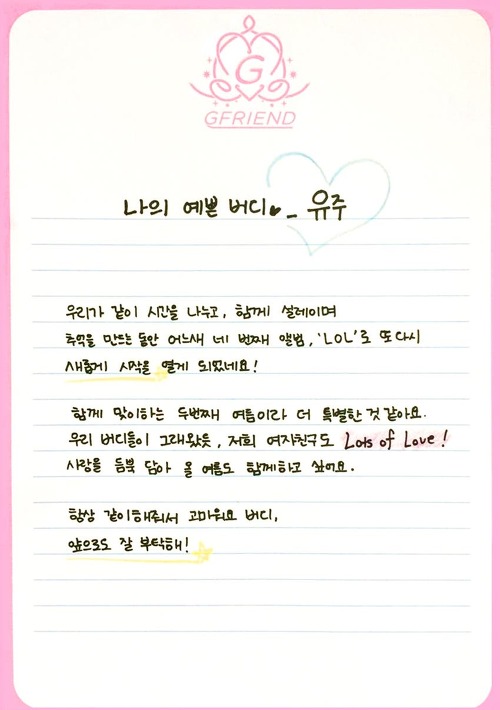 G
GFRIEND
나의 예쁜 버디♥_ 유주
우리가 같이 시간을 나누고, 함께 설레이며
추억을 만드는 동안 어느새 네 번째 앨범, 'LOL'로 또 다시
새롭게 시작을 열게 되었네요!
함께 맞이하는 두번째 여름이라 더 특별한 것 같아요.
우리 버디들이 그래왔듯, 저희 여자친구도 Lots of Love!
사랑을 듬뿍 담아 올 여름도 함께하고 싶어요.
항상 같이해줘서 고마워요 버디,
앞으로도 잘 부탁해!